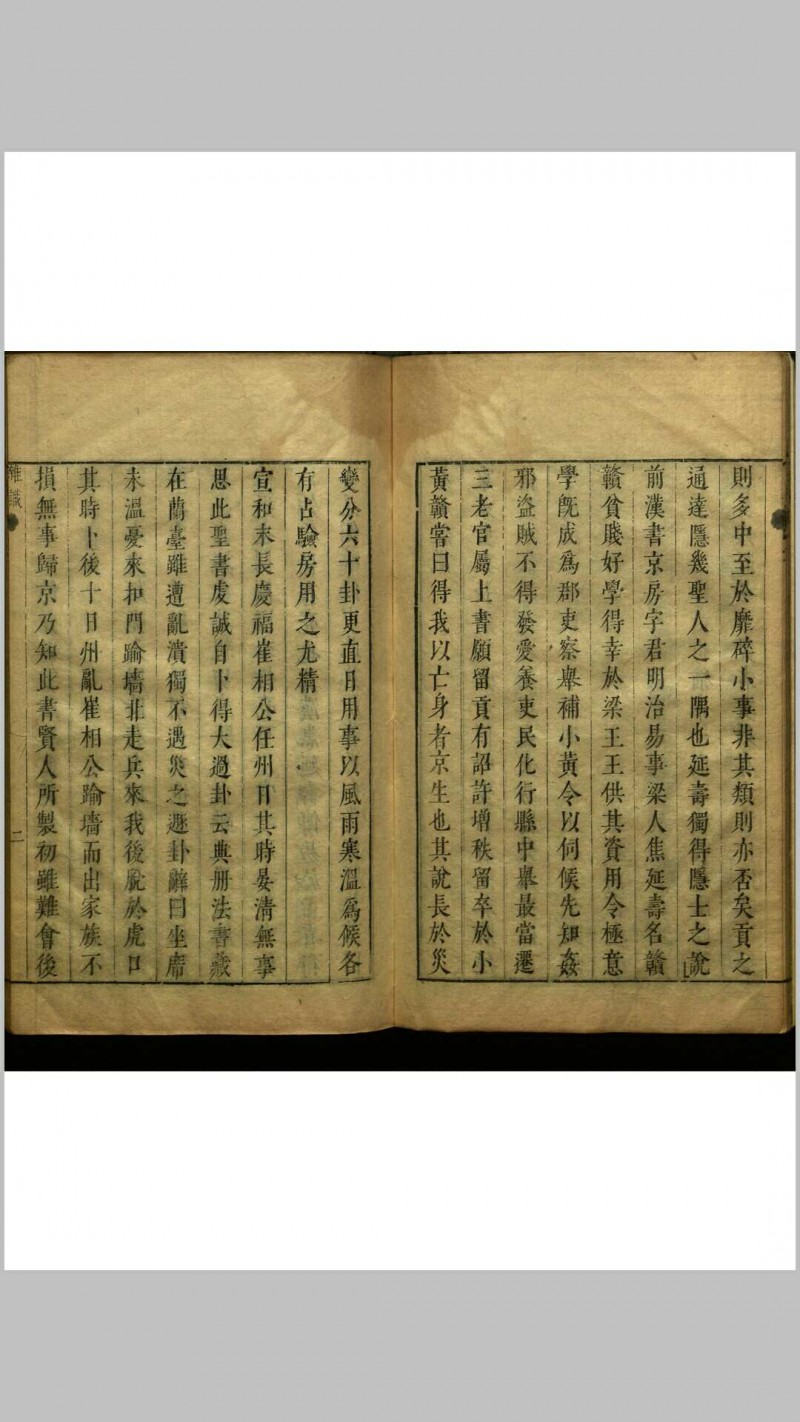 則多中至於靡碎小事非其類則亦否矣貢之
通達隱幾聖人之一隅也延壽獨得隱士之說
前漢書京房字君明治易事梁人焦延壽名贛
贛貧賤好學得幸於梁王王供其資用令極意
學旣成爲郡吏察舉補小黃令以伺候先知姦
邪盜賊不得發愛養吏民化行縣中舉最當遷
三老官屬上書願留貢有詔許增秩留卒於小
黃贛常曰得我以亡身者京生也其說長於災
變分六十卦更直日用事以風雨寒溫爲候各
有占驗房用之尤精
宣和末長慶福崔相公任州日其時晏清無事
思此聖書虔誠自卜得大過卦云典册法書藏
在蘭臺雖遭亂潰獨不遇災之遯卦辭曰坐席
未溫憂來扣門踰墻北走兵來我後脫於虎口
其時卜後十日州亂崔相公踰墻而出家族不
損無事歸京乃知此書賢人所製初雖難會後
雜識
二